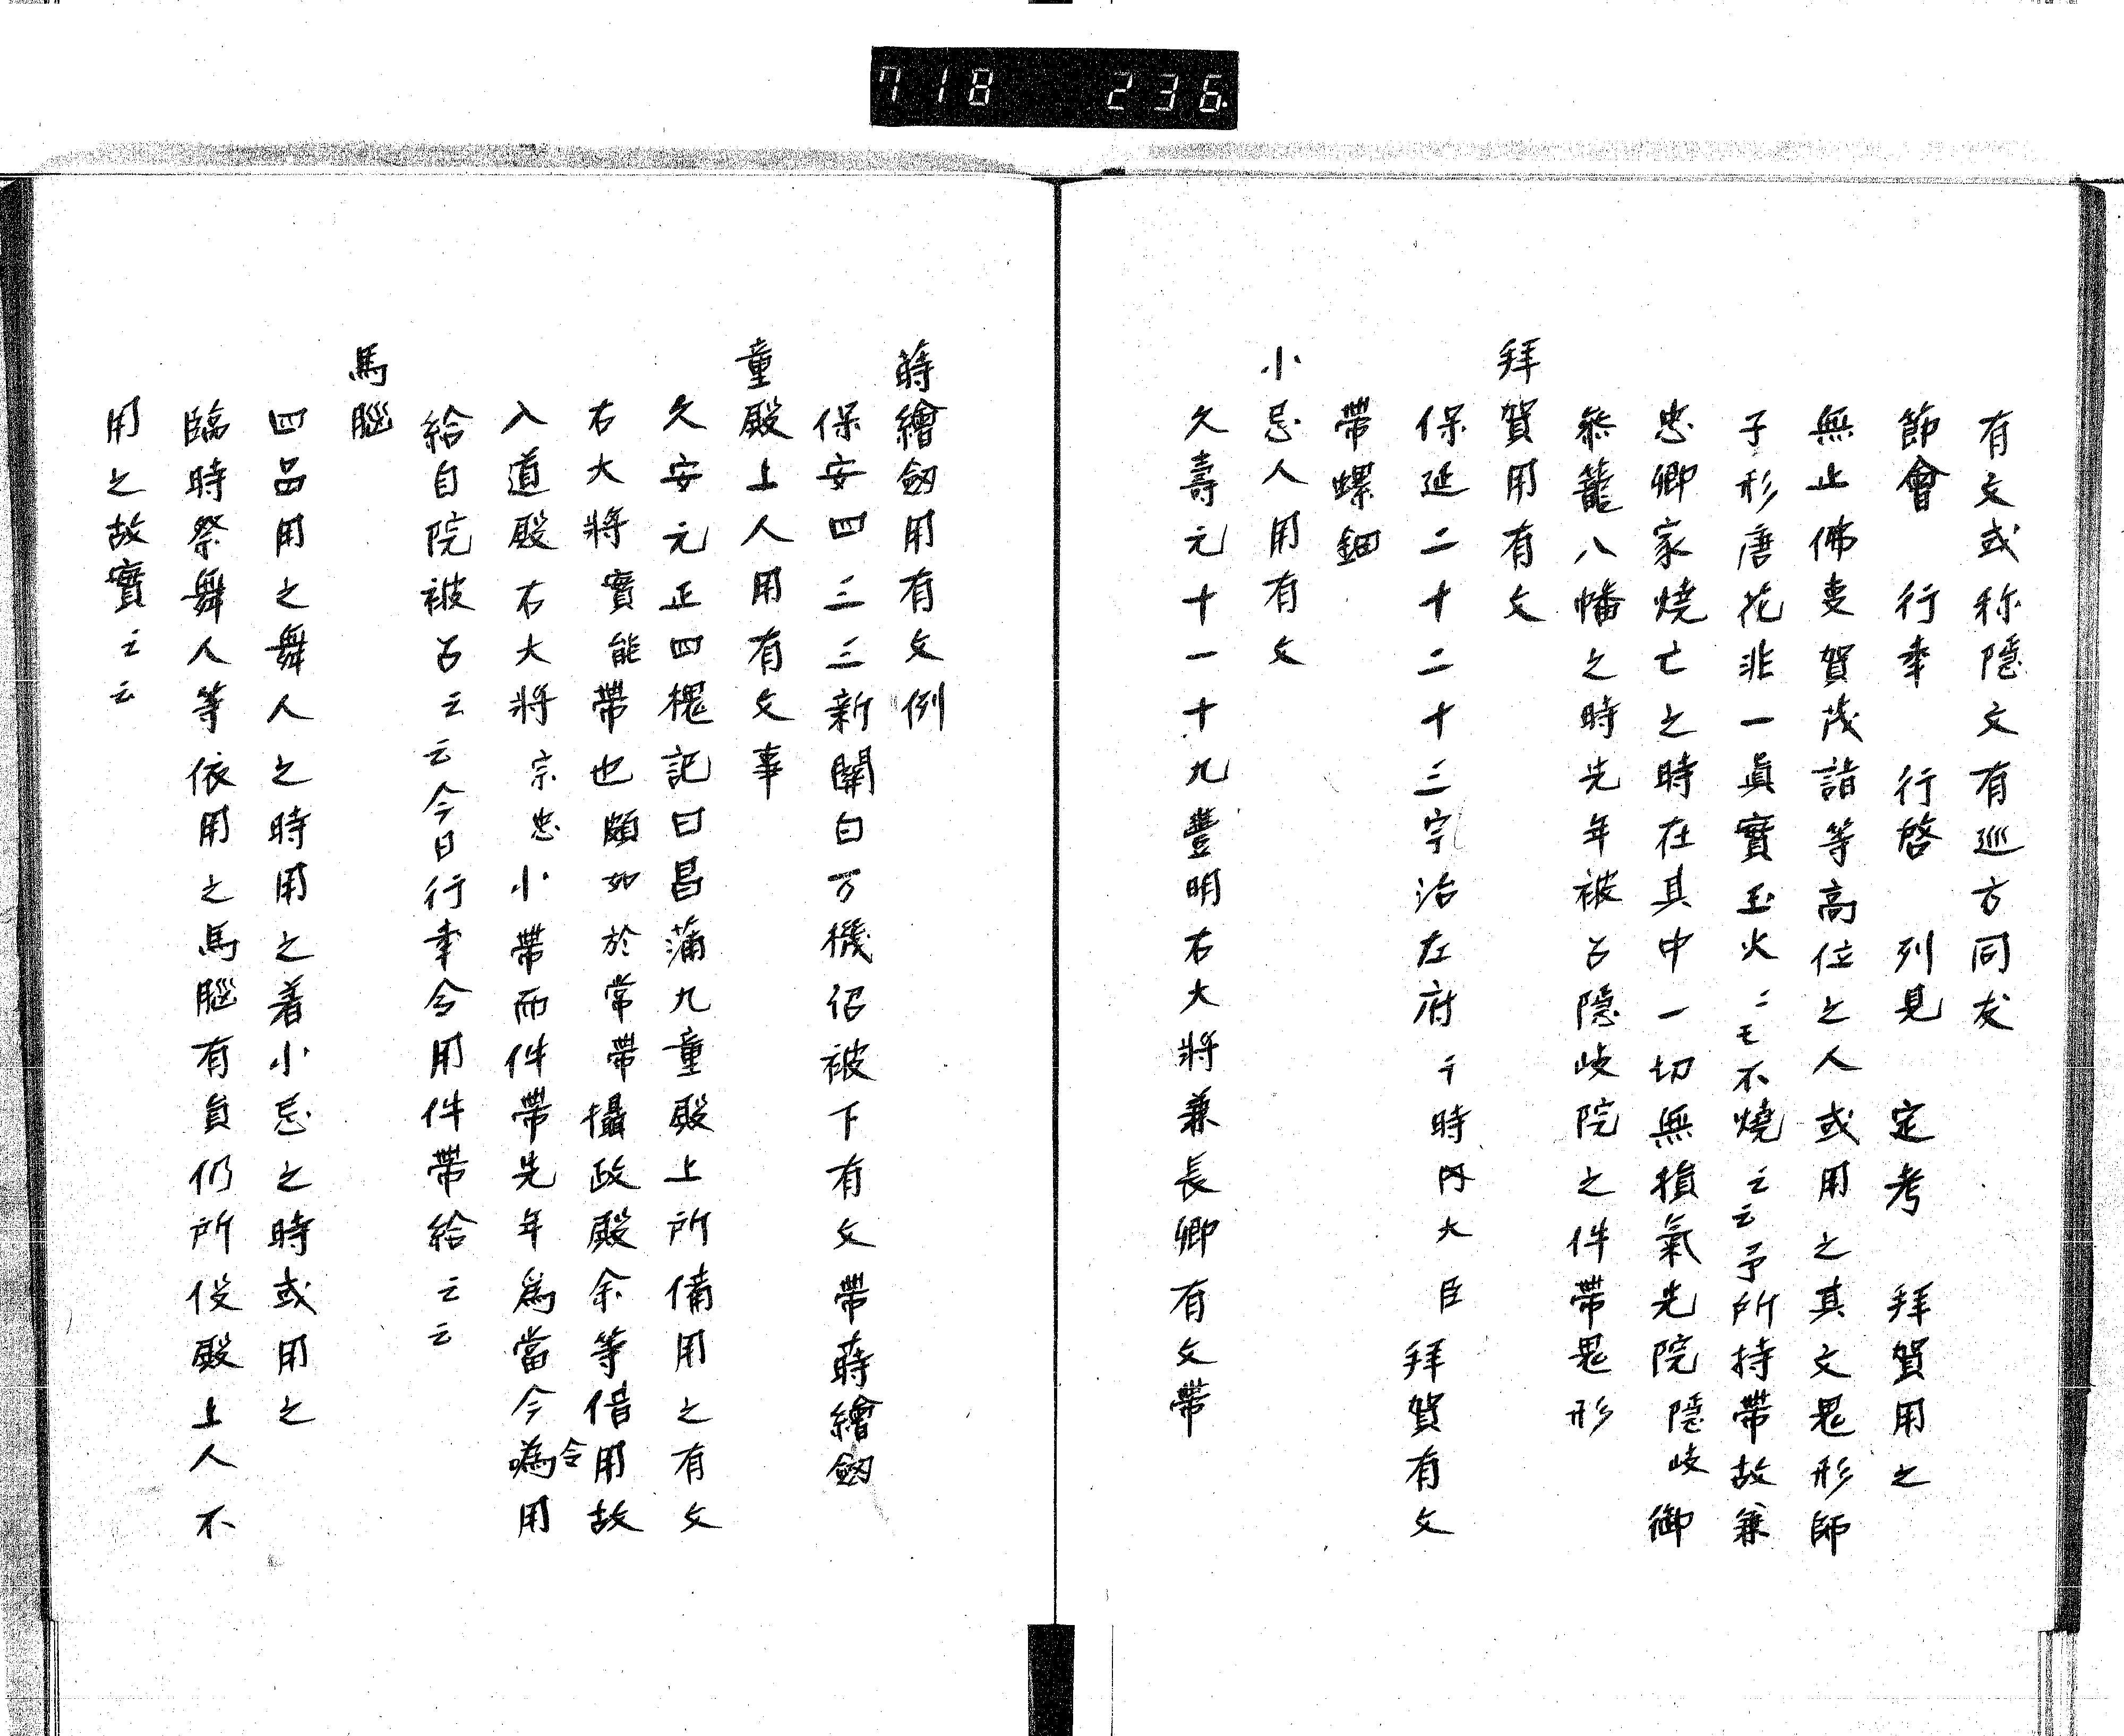 718 236
有文或称隠文有巡方同友
節會 行幸 行啓 列見 定考 拜賀用之
無止佛㕝賀茂詣等高位之人或用之其文鬼形師
子形唐花非一眞實玉火ニモ不燒云云予所持帶故兼
忠卿家燒亡之時在其中一切無損氣先院隠岐御
叅籠八幡之時先年被召隠岐院之件帶鬼形
拜賀用有文
保延二十二十三宇治左府于時内大臣拜賀有文
帶螺鈿
小忌人用有文
久壽元十一十九豐明右大將兼長卿有文帶
蒔繪劔用有文例
保安四三三新關白万機詔被下有文帶蒔繪劔
童殿上人用有文事
久安元正四槐記曰昌蒲九童殿上所備用之有文
右大將實能帶也頗如於常帶攝政殿余等借用故
入道殿右大將宗忠小帶而件帶先年爲當今令嗚用
給自院被召云云今日行幸令用件帶給云云
馬腦
四品用之舞人之時用之着小忌之時或用之
臨時祭舞人等依用之馬腦有員仍所役殿上人不
用之故實云云